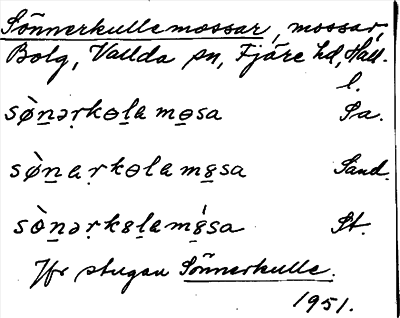 Sönnerkullemossar, mossar,
Bolg, Vallda sn, Fjäre hd, Hall.
l.
sø̀n̲ərkɵl̲a mɵ̲sa Sa.
sø̀n̲a̤rkɵla mɞ̲sa Sand.
sòn̲ərkɞl̲amɞ̲́sa St.
Jfr stugan Sönnerkulle.
1951.